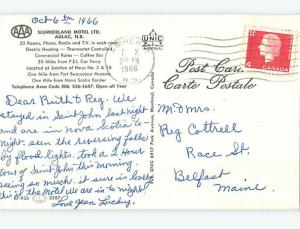 Oct 6th 1966
AAA
SLUMBERLAND MOTEL LTD.
AULAC, N.B.
20 Rooms, Phone, Radio and T.V. in each room
Electric Heating - Thermostat Controlled
Commercial Rates - Coffee Bar
20 Miles from P.E.I. Car Ferry
Located at Junction of Hwys No. 2 & 16
One Mile from Fort Beausejour Museum
One Mile from Nova Scotia Border
Telephone Area Code 506 536-1657. Open All Year
Dear Ruth & Reg. We
stayed in Saint John last night
and are in Nova Scotia to
night. seen the reversing falls
by flood lights. took a 2 hour
tour of Saint John this morning.
seeing so much. it sure is lovely
this is the Motel we are in to night
Love Jean
UNIC
MONTREAL
PM
1966
N.S.
CANADA
Post Card
Carte Postale
Mr & Mrs.
Reg Cottrell
Race St.
Belfast
Maine.